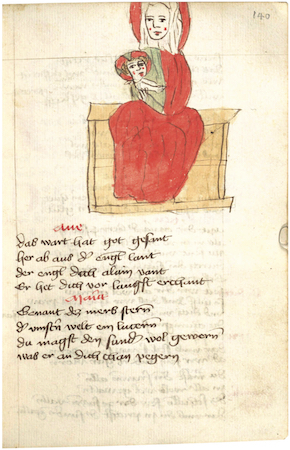 140
Aue
das wart hat got gesant
her ab aus d' engl lant
der engl dich alain vant
Er het dich vor langst erchant
Maria
Genant dez mers stern
d' vinstn welt ein lucern
du magst den sund' wol gewern
was er an dich chan pegern